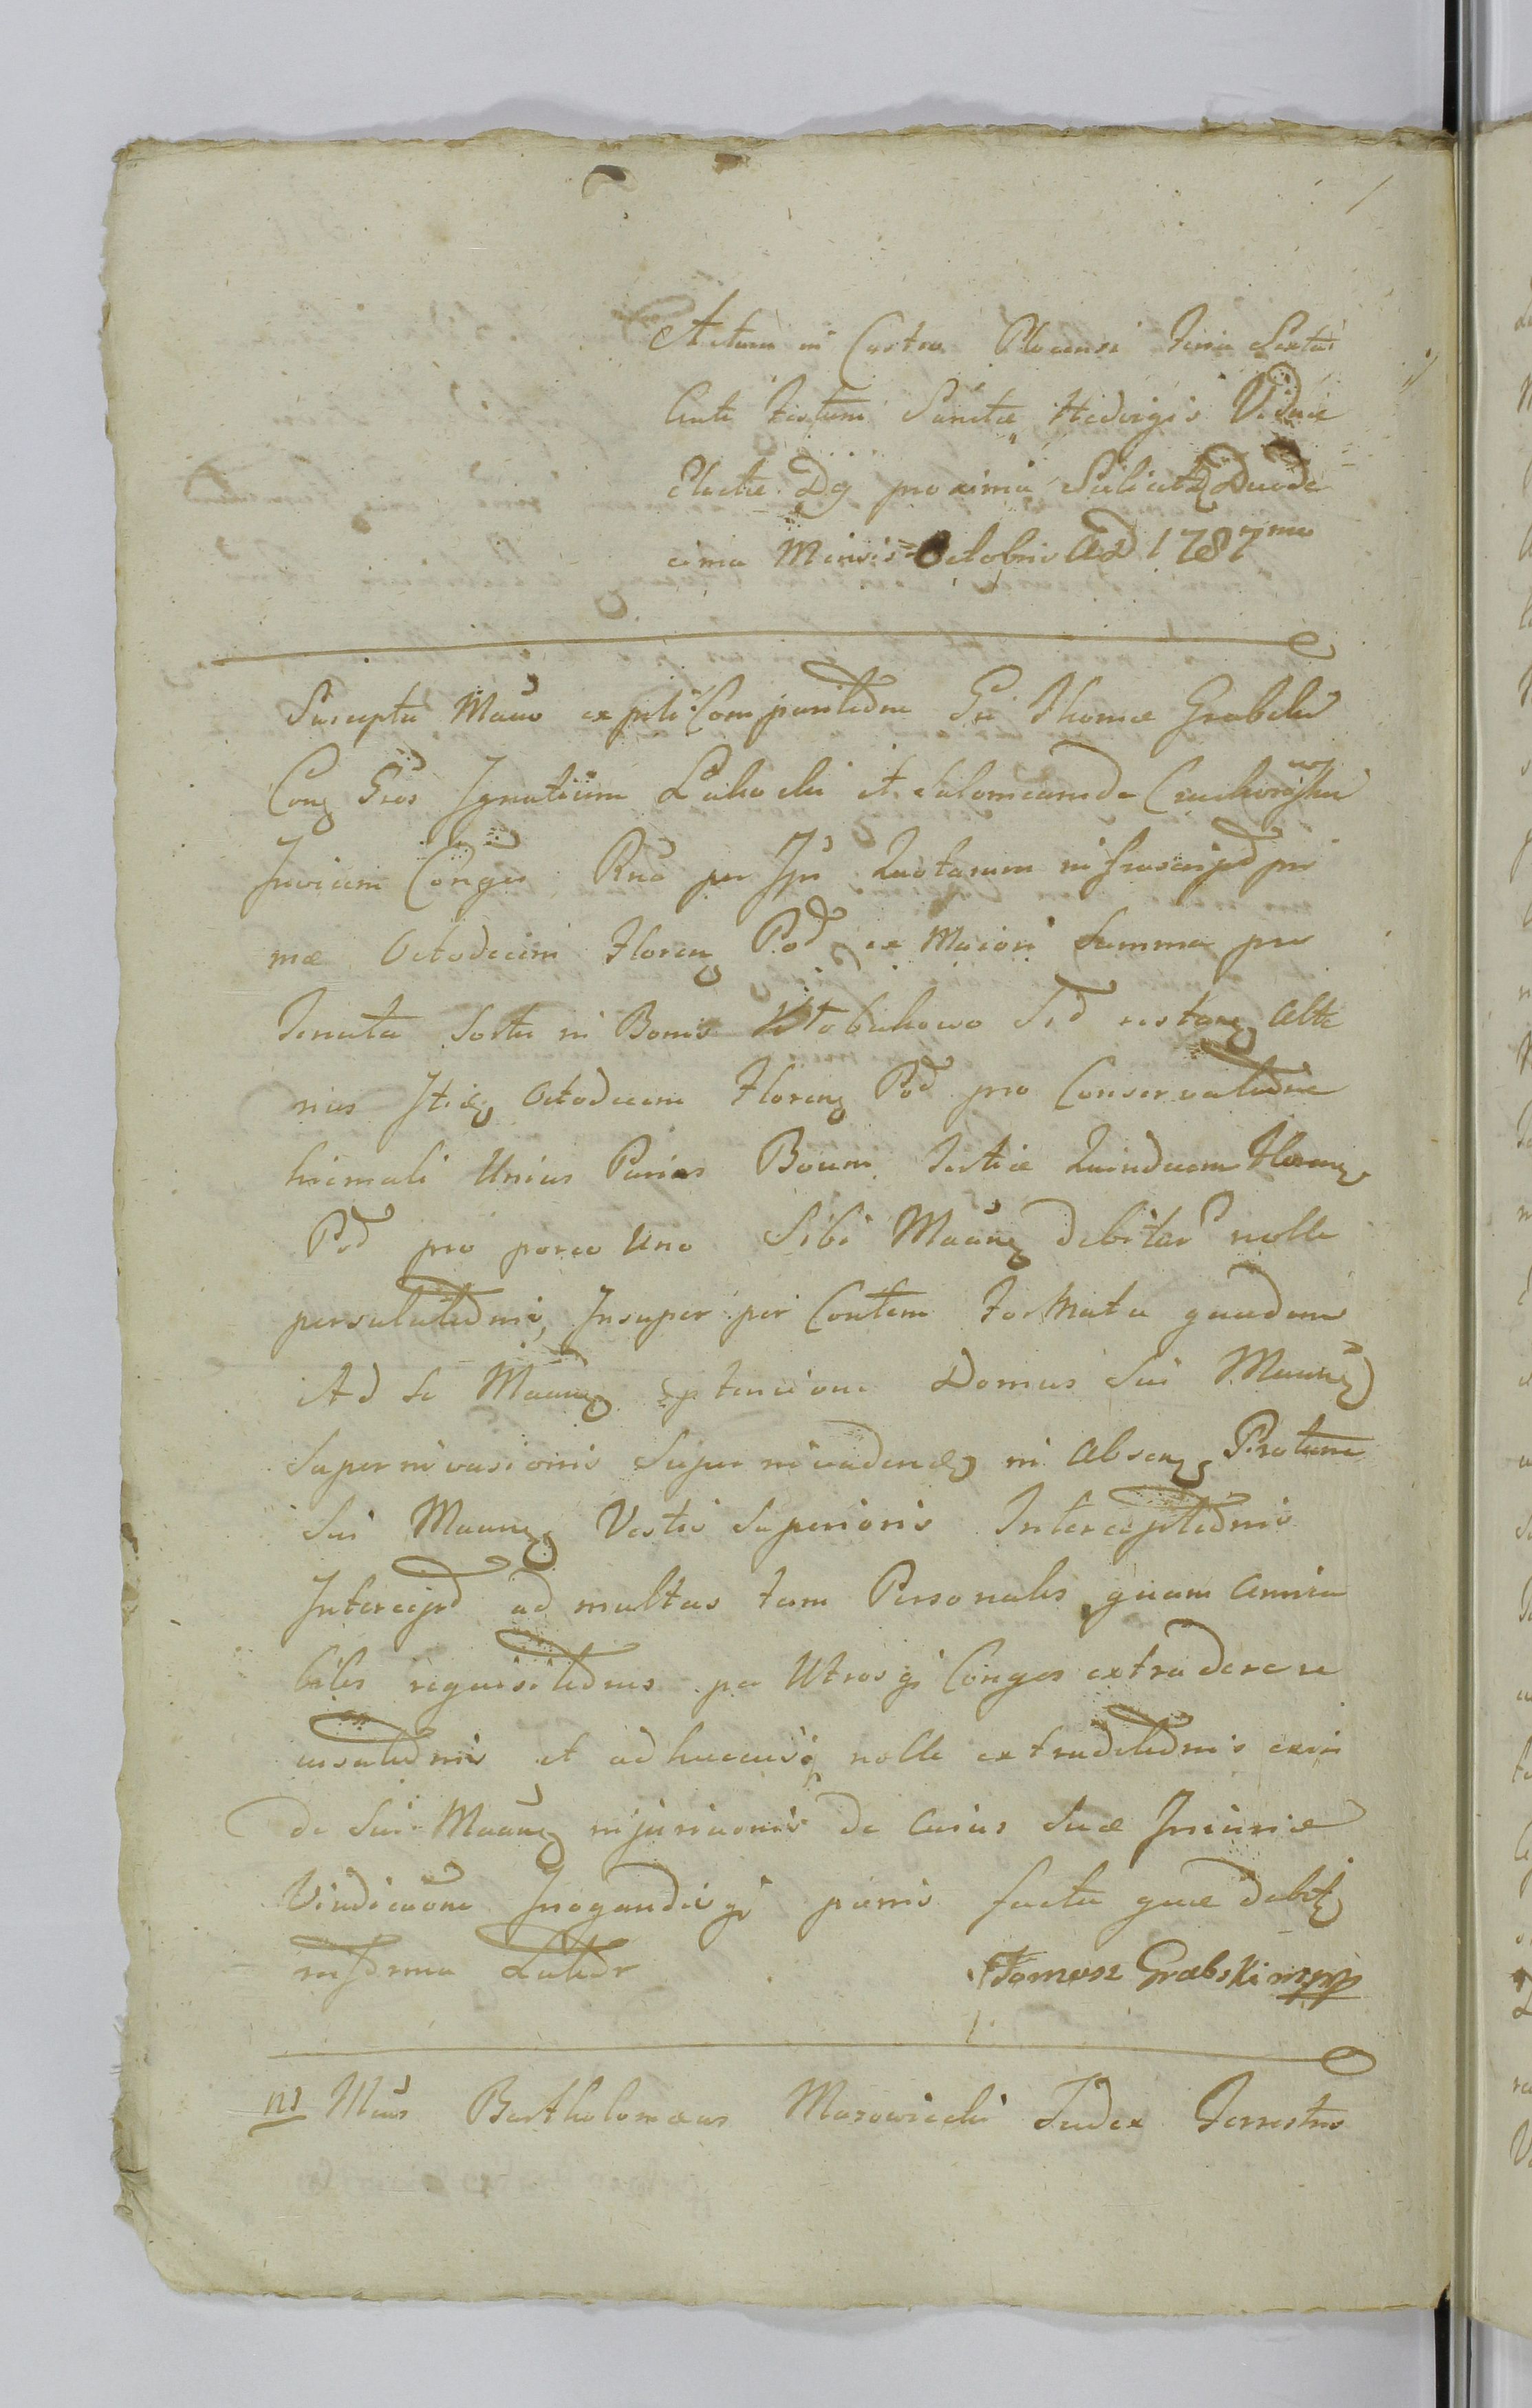 Actum in Castro Plocensi Feria Sexta
Ante Festum Sanctæ Hedvigis Viduæ
Electæ Dg proxima Scilicet Duode
cima Mensis Octobris AD 1787mo
Suscepta Mañio ex pte Comparitedne Gsi Thomæ Grabski
Conq Gsos Ignatium Lasocki et Salomeam de Czachorowskie
Invicem Conges Rño per Ips Quotarum infrascript pri
mæ Octodecim Floren Pol ex Maiori Summa pro
Tenuta Sorte in Bonis Kłobukowo Sed restan Alte
rius Itidq Octodecim Floren Pol pro Conservatedne
hiemali Unius Pariis Boum Tertiæ Quindecem Floren
Pol pro porco Uno Sibi Mañnq debitar nolle
persolutednis, Insuper per Contem formata quadam
Ad Se Mañnq ptensione Domus Sui Mañnq
Superinvasionis Superinvadendq in Absen Protunc
Sui Mañnq Vestis Superioris Interceptednis
Intercept ad multas tam Personales quam Amica
biles requisitednes per Utrosq Conges extradere re
cusatednis et adhucusq nolle extraditednis exin
de Sui Mañnq injuriaonis de cuius Suæ Iniuriæ
Vindicaone Irogandisq pænis facta quæ debit
in forma Latedr
Tomasz Grabski mpp
ns Mñus Bartholomæus Mazowiecki Judex Terrestris